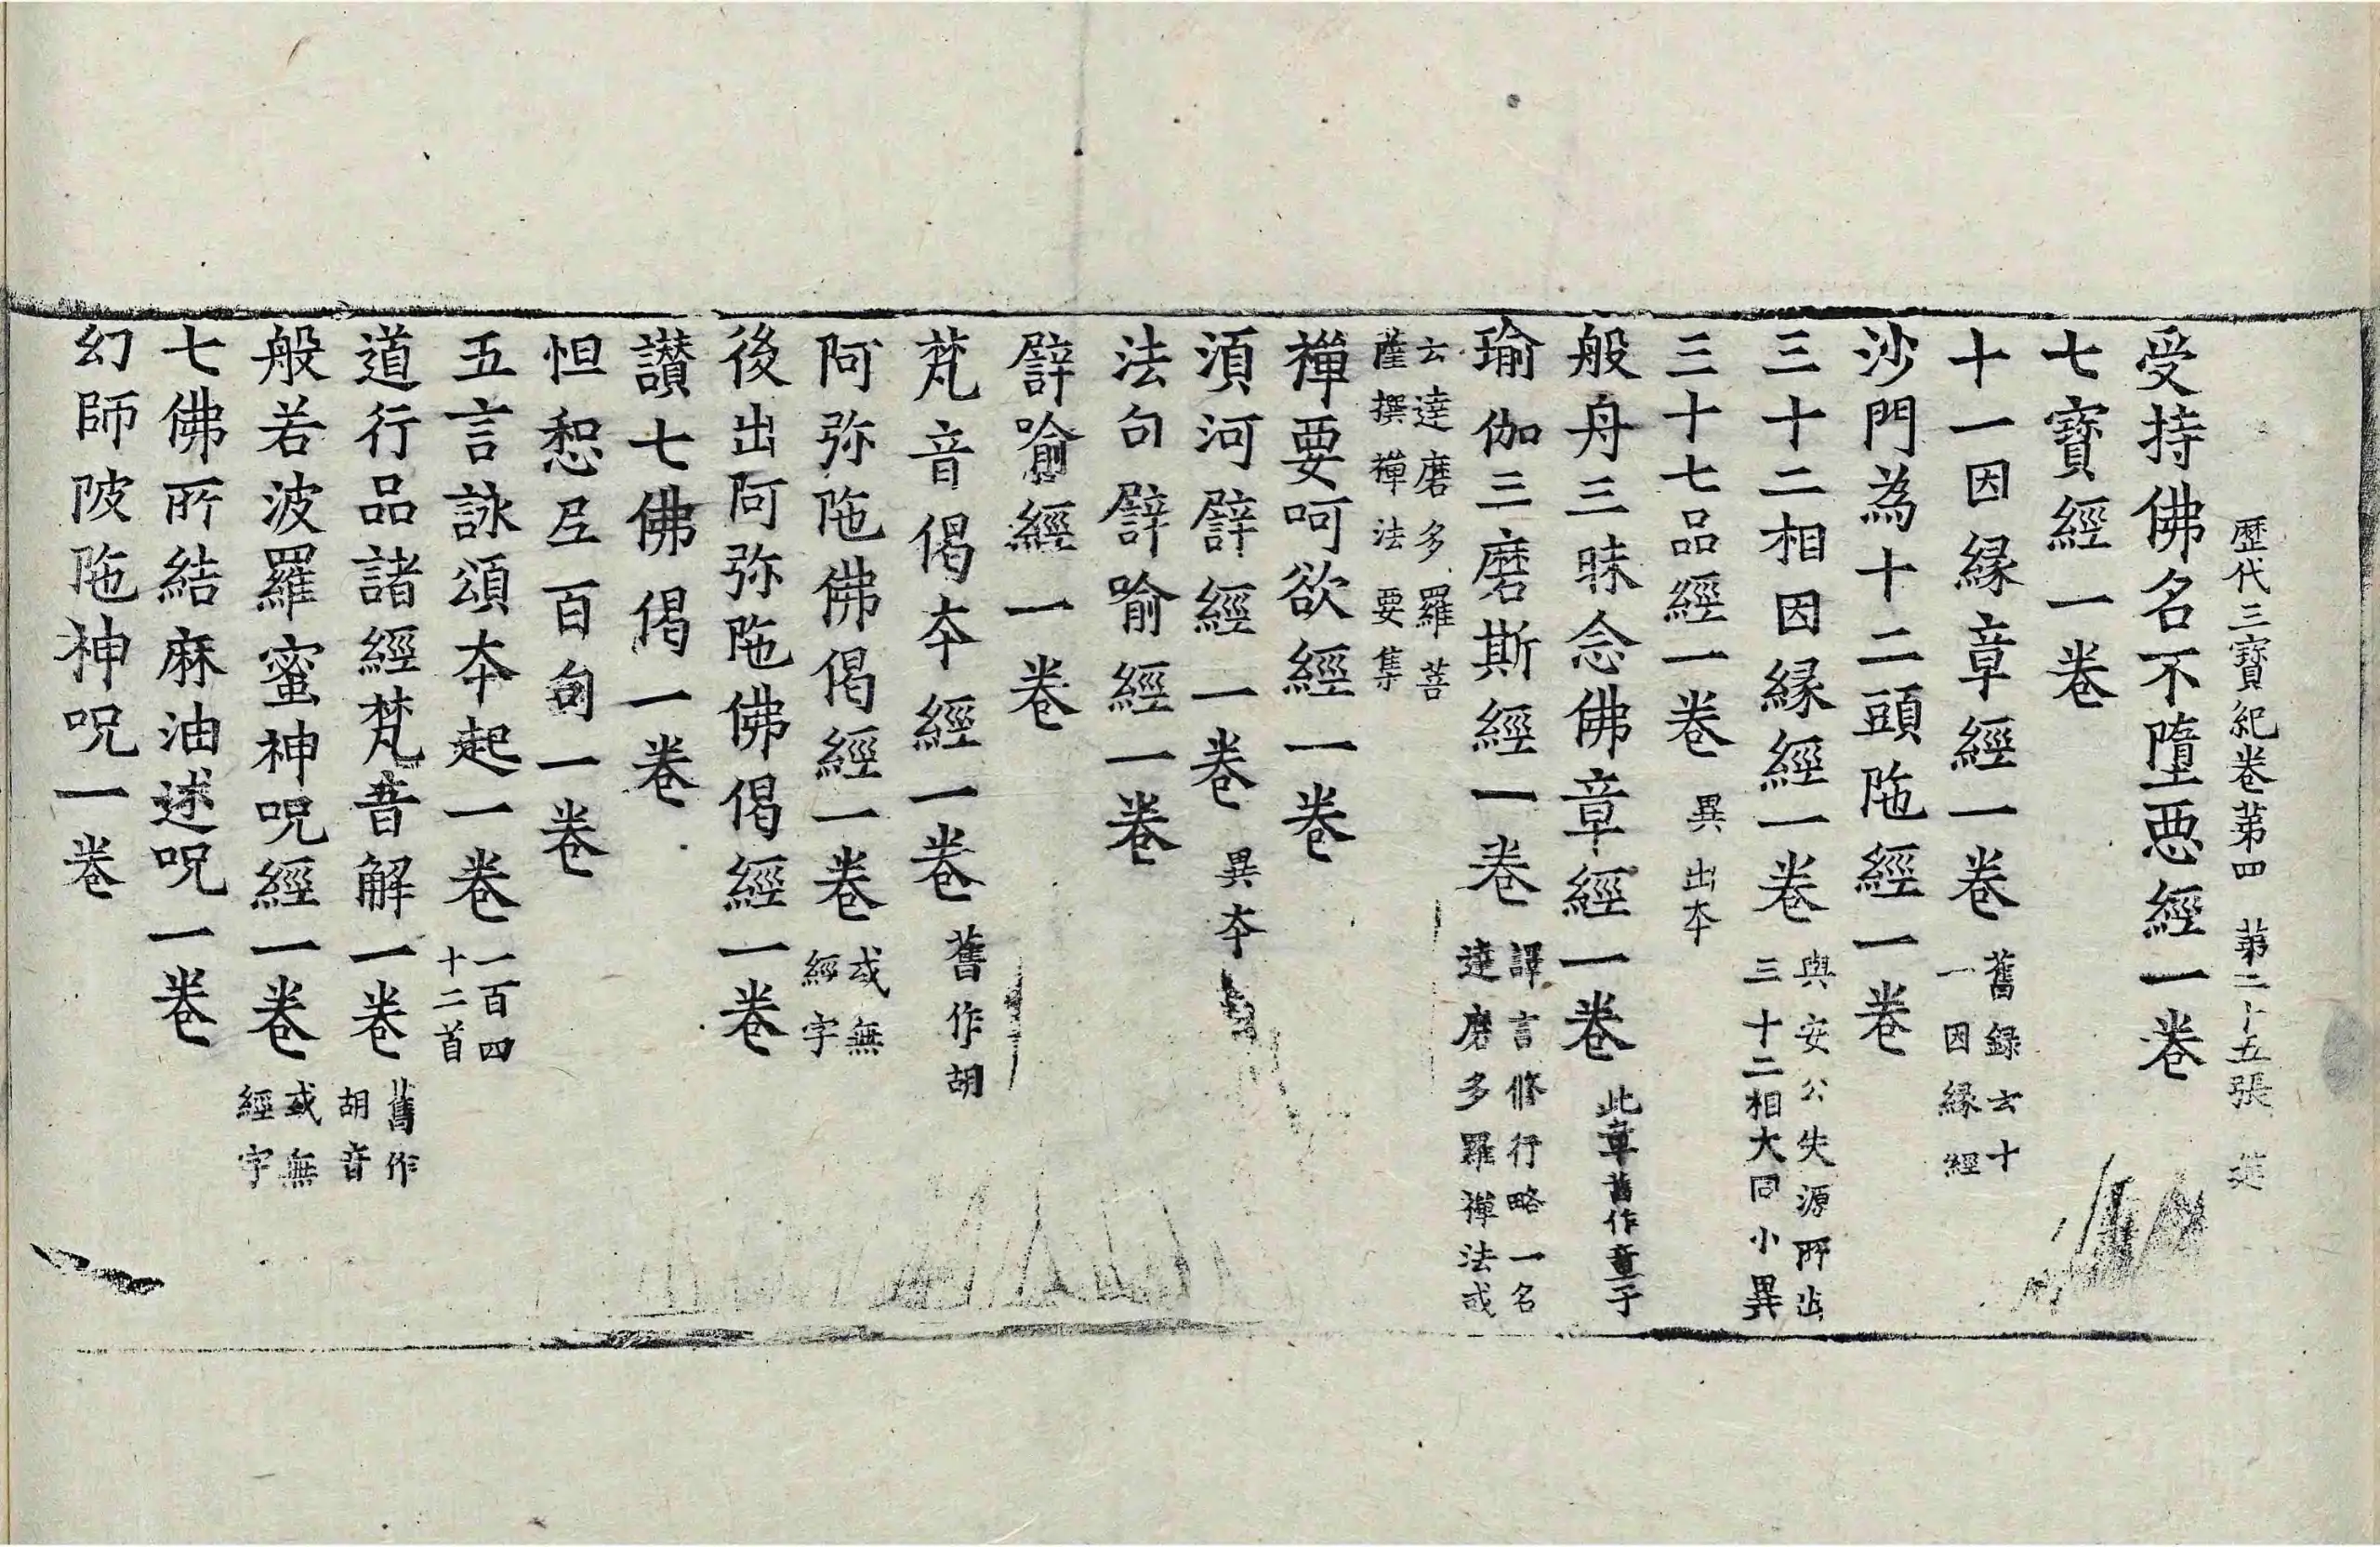 歷代三寶紀卷第四　第二十五張　筵
受持佛名不墮惡經一卷
七寳經一卷
十一因緣章經一卷 舊録云十
一因緣經
沙門為十二頭陁經一卷
三十二相因緣經一卷 與安公失源所出
三十二相大同小異
三十七品經一卷 異出本
般舟三昧念佛章經一卷 此章舊作童子
瑜伽三磨斯經一卷 譯言修行略一名
達磨多羅禪法或
云達磨多羅菩
薩撰禪法要集
禪要呵欲經一卷
湏河譬經一卷 異本
法句譬喻經一卷
譬喻經一卷
梵音偈本經一卷 舊作胡
阿弥陁佛偈經一卷 或無
經字
後出阿弥陁佛偈經一卷
讃七佛偈一卷
怛惒尼百句一卷
五言詠頌本起一卷 一百四
十二首
道行品諸經梵音解一卷 舊作
胡音
般若波羅蜜神呪經一卷 或無
經字
七佛所結麻油述呪一卷
幻師陂陁神呪一卷